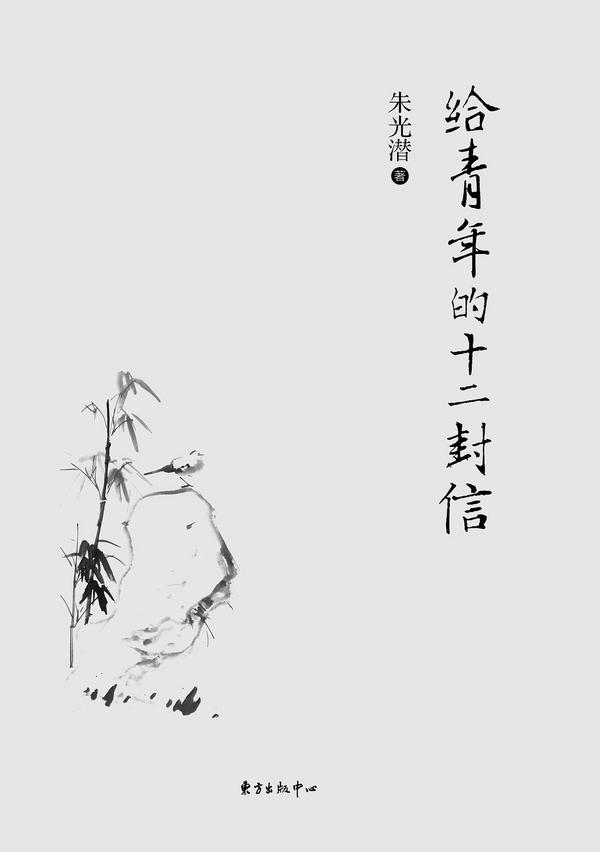 给青年的十二封信
朱光潜 著
東方出版中心